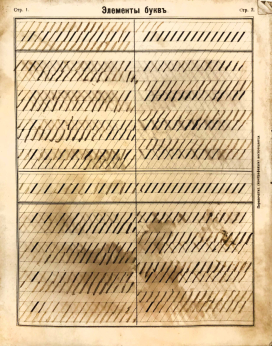 Стр. 1.
Элементы буквъ
Стр. 2.